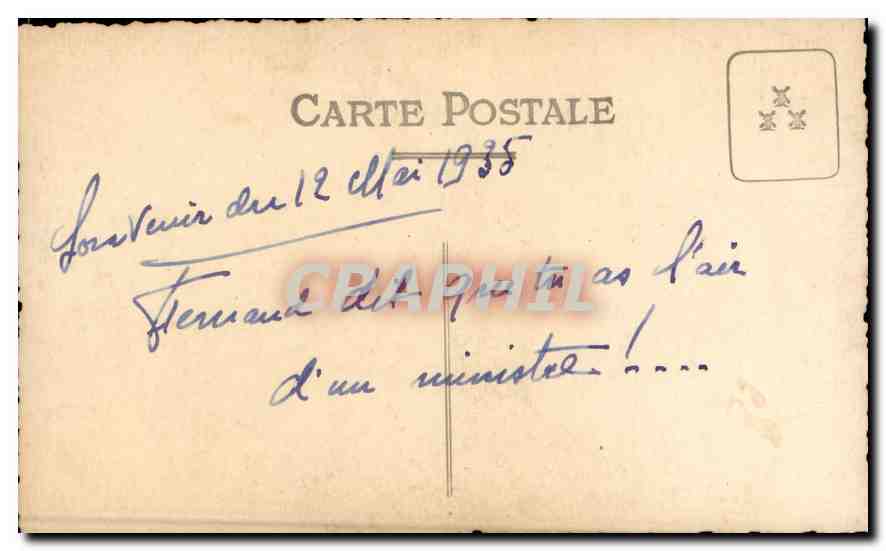 CARTE POSTALE
Souvenir du 12 Mai 1935
CPAPHIL
Fernand dit que tu as l'air
d'un ministre !....